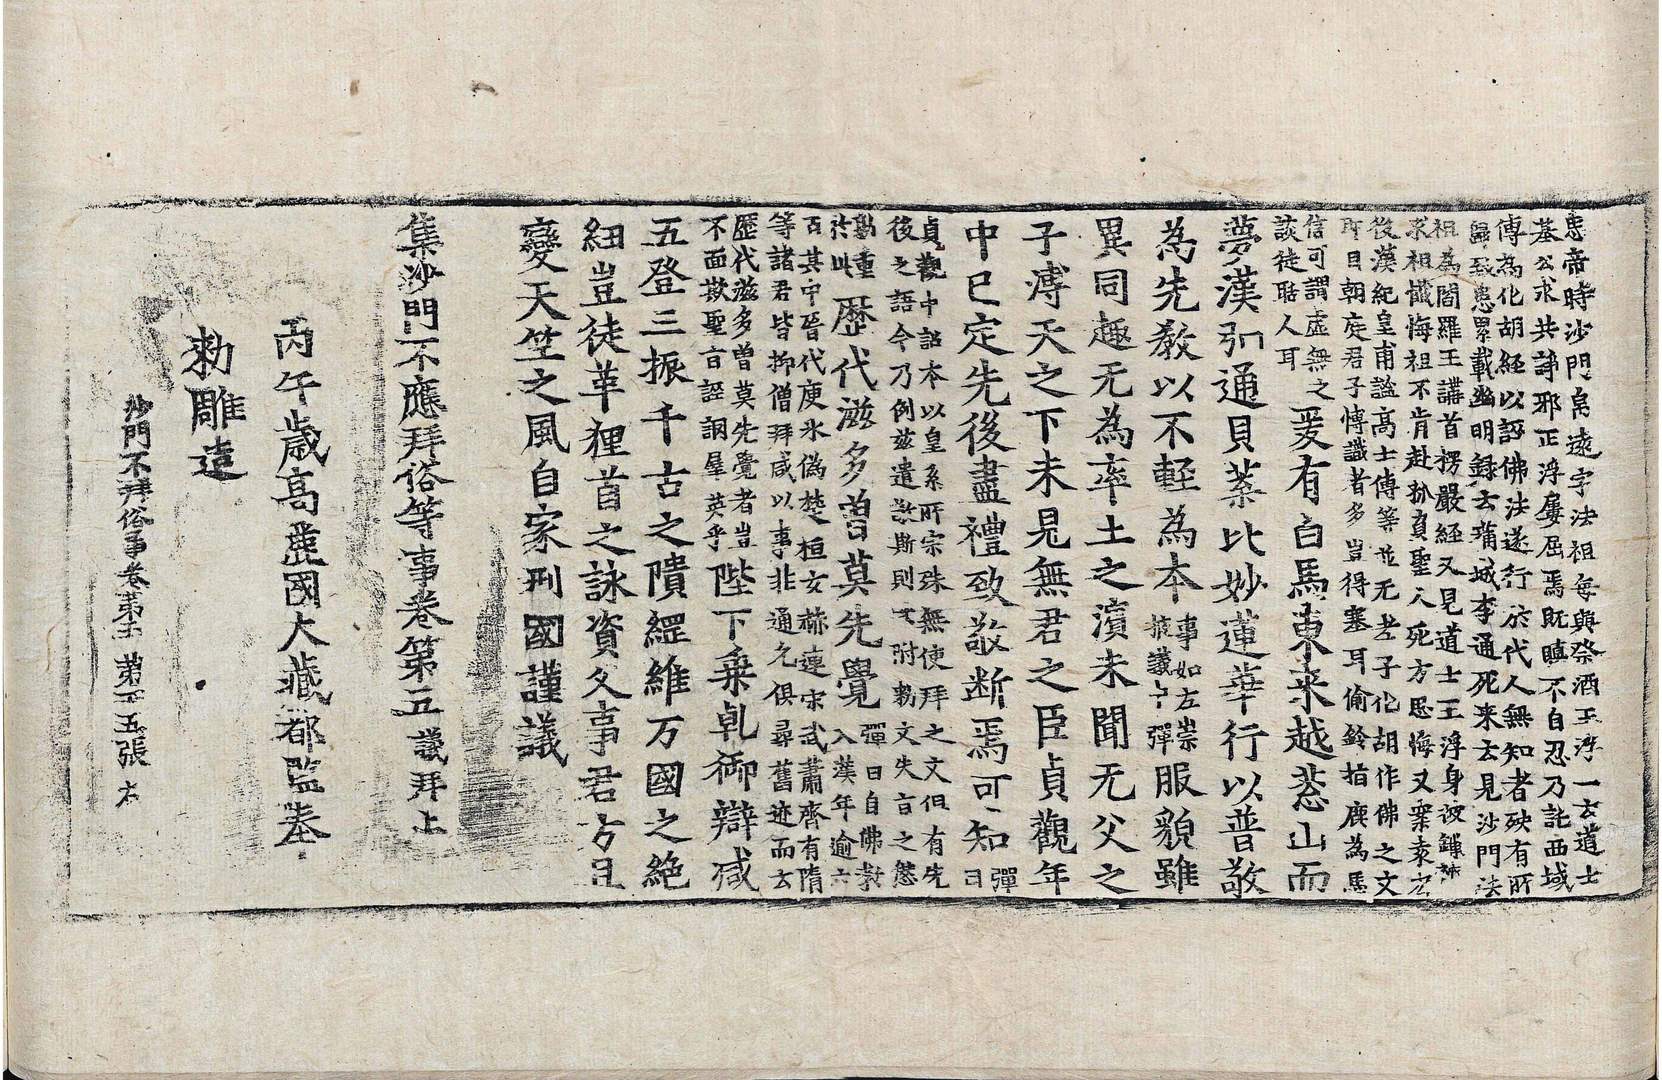 惠帝時沙門帛遠字法祖每與祭酒王浮一云道士
基公求共諍邪正浮屢屈焉既瞋不自忍乃託西域
傳為化胡經以誣佛法遂行於代人無知者殃有所
歸致患累載幽明録云蒲城李通死来云見沙門法
祖為閻羅王講首楞嚴經又見道士王浮身被鏁械
求祖懺悔祖不肯赴孤負聖人死方思悔又案袁宏
後漢紀皇甫謐高士傳等並无老子化胡作佛之文
耳目朝廷君子博識者多豈得塞耳偷鈴指鹿為馬
信可謂虛無之
談徒聒人耳 爰有白馬東来越葱山而
夢漢引通貝葉比妙蓮華行以普敬
為先教以不輕為本 事如左崇
拔議中彈 服貌雖
異同趣无為率土之濱未聞无父之
子溥天之下未見無君之臣貞觀年
中已定先後盡禮致敬断焉可知 彈
曰
貞觀中詔本以皇系所宗殊無使拜之文但有先
後之語今乃例兹遣敬斯則文附勅文失言之愆
尠重
於此 歷代滋多曾莫先覺 彈曰自佛教
入漢年逾六
百其中晉代庾氷偽楚桓玄赫連宋武蕭齊有隋
等諸君皆抑僧拜咸以事非通允俱尋舊迹而云
歷代滋多曾莫先覺者豈
不面欺聖言誣誷羣英乎 陛下乗乹御辯减
五登三振千古之隤綱維万國之絶
紐豈徒革狸首之詠資父事君方且
變天竺之風自家刑國謹議
集沙門不應拜俗等事卷第五 議拜上
丙午歲高麗國大藏都監奉
勅雕造
沙門不拜俗事卷第五 第五張